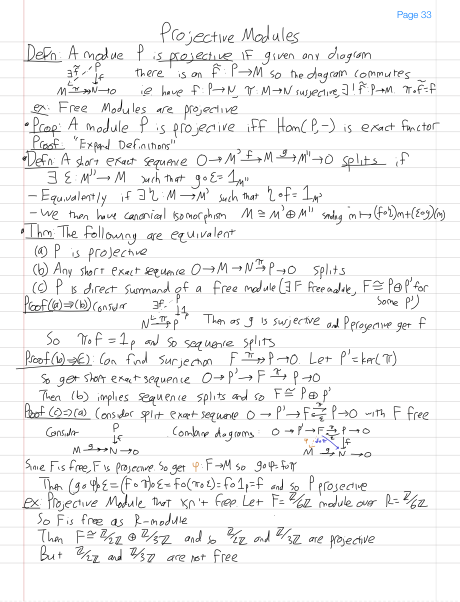 Page 33
Projective Modules
Defn: A module P is projective if given any diagram
∃f̃ P ↓f M π→ N → 0 there is an f̃: P→M so the diagram commutes
ie have f: P→N, π: M→N surjective, ∃! f̃: P→M π∘f̃=f
ex: Free Modules are projective
• Prop: A module P is projective iff Hom(P,-) is exact functor
Proof "Expand Definitions"
• Defn: A short exact sequence 0→M' f→ M g→ M''→0 splits if
∃ ε: M''→M such that g∘ε = 1_M''
- Equivalently if ∃ η: M→M' such that η∘f = 1_M'
- we then have canonical isomorphism M ≅ M'⊕M'' sending
• Thm: The following are equivalent
(a) P is projective
(b) Any short exact sequence 0→M→N π→ P→0 splits
(c) P is direct summand of a free module (∃ F free module, F≅P⊕P' for some P')
Proof (a)⇒(b) Consider ∃f P ↓1 N π→ P Then as g is surjective and P projective get f
So π∘f = 1_P and so sequence splits
Proof (b)⇒(c): Can find surjection F π→ P→0 Let P' = ker(π)
So get short exact sequence 0→P'→F π→ P→0
Then (b) implies sequence splits and so F≅P⊕P'
Proof (c)⇒(a) Consider split exact sequence 0→P'→F P→0 with F free
Consider P ↓f M g→ N→0 Combine diagrams: 0→P'→F P→0 φ ↓f M g→ N→0
Since F is free, F is projective so get φ: F→M so g∘φ = f∘π
Then (g∘φ)∘ε = (f∘π)∘ε = f∘(π∘ε) = f∘1_P = f and so P projective
ex: Projective Module that isn't free Let F = ℤ/6ℤ module over R = ℤ/6ℤ
So F is free as R-module
Then F ≅ ℤ/2ℤ ⊕ ℤ/3ℤ and so ℤ/2ℤ and ℤ/3ℤ are projective
But ℤ/2ℤ and ℤ/3ℤ are not free